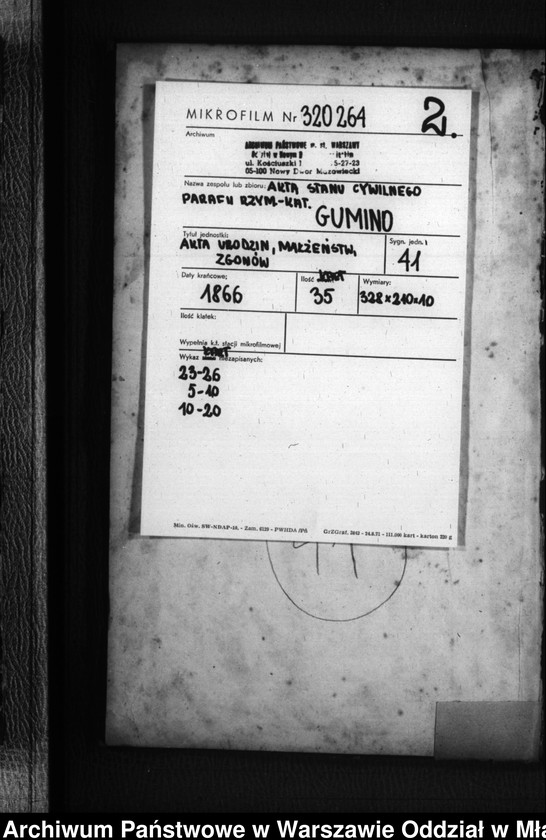 MIKROFILM Nr 320264
2.
Archiwum
ARCHIWUM PAŃSTWOWE m. st. WARSZAWY
ul. Kościuszki 1 5-27-23
05-100 Nowy Dwór Mazowiecki
Nazwa zespołu lub zbioru: AKTA STANU CYWILNEGO
PARAFII RZYM.-KAT.
GUMINO
Tytuł jednostki:
AKTA URODZIN, MAŁŻEŃSTW,
ZGONÓW
Sygn. jedn.
41
Daty krańcowe:
1866
Ilość KART
35
Wymiary:
328x210x10
Ilość klatek:
Wypełnia k.t. stacji mikrofilmowej
Wykaz KART niezapisanych:
23-26
5-10
10-20
Min. Ośw. SW-NDAP-16. - Zam. 6129 - PWHDA
GzZGraf. - 111.100 kart - karton 220 g
Archiwum Państwowe w Warszawie Oddział w Mła